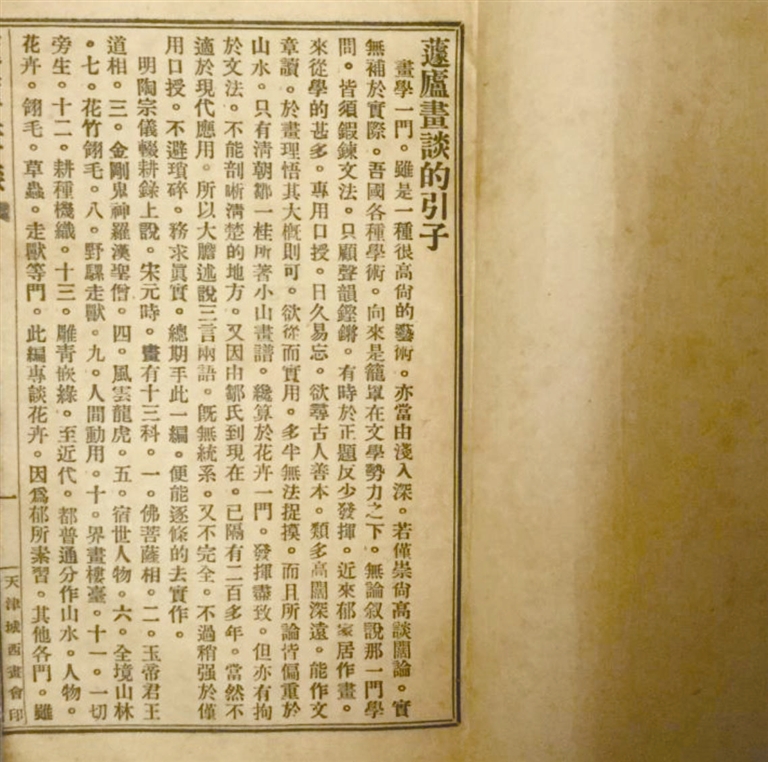 蘧廬畫談的引子
畫學一門。雖是一種很高尙的藝術。亦當由淺入深。若僅崇尙高談闊論。實
無補於實際。吾國各種學術。向來是籠罩在文學勢力之下。無論叙說那一門學
問。皆須鍛鍊文法。只顧聲韻鏗鏘。有時於正題反少發揮。近來郁家居作畫。
來從學的甚多。專用口授。日久易忘。欲尋古人善本。類多高闊深遠。能作文
章讀。於畫理悟其大槪則可。欲從而實用。多半無法捉摸。而且所論皆偏重於
山水。只有淸朝鄒一桂所著小山畫譜。纔算於花卉一門。發揮盡致。但亦有拘
於文法。不能剖晰淸楚的地方。又因由鄒氏到現在。已隔有二百多年。當然不
適於現代應用。所以大膽述說三言兩語。旣無統系。又不完全。不過稍强於僅
用口授。不避瑣碎。務求眞實。總期手此一編。便能逐條的去實作。
明陶宗儀輟耕錄上說。宋元時。畫有十三科。一。佛菩薩相。二。玉帝君王
道相。三。金剛鬼神羅漢聖僧。四。風雲龍虎。五。宿世人物。六。全境山林
。七。花竹翎毛。八。野騾走獸。九。人間動用。十。界畫樓臺。十一。一切
旁生。十二。耕種機織。十三。雕靑嵌綠。至近代。都普通分作山水。人物。
花卉。翎毛。草蟲。走獸等門。此編專談花卉。因爲郁所素習。其他各門。雖
一
天津城西畫會印